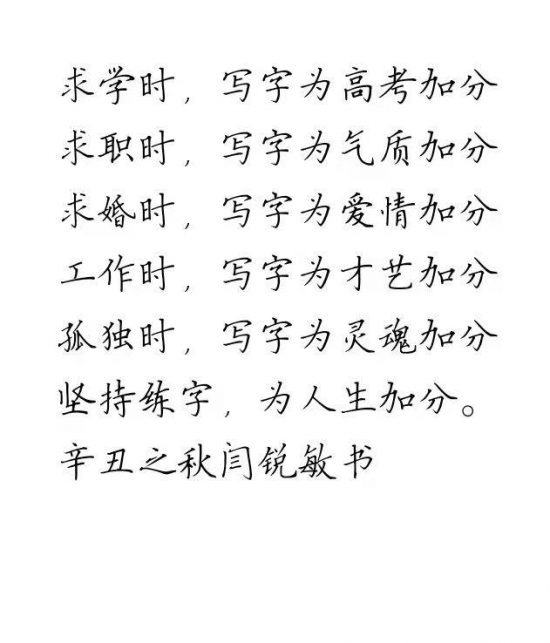 求学时，写字为高考加分
求职时，写字为气质加分
求婚时，写字为爱情加分
工作时，写字为才艺加分
孤独时，写字为灵魂加分
坚持练字，为人生加分。
辛丑之秋闫锐敏书